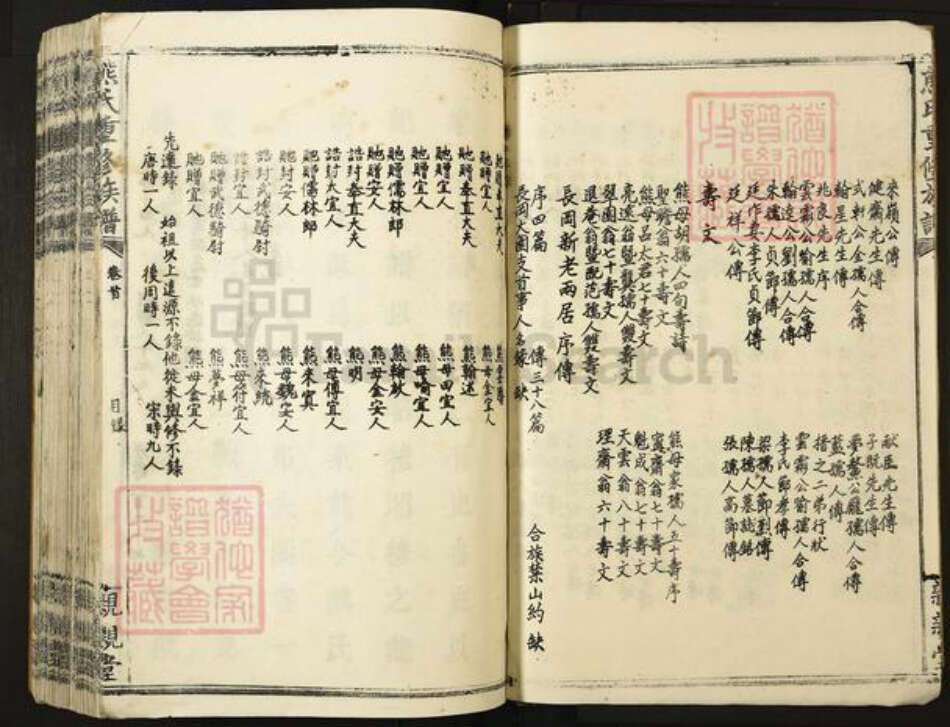 熊氏重修族譜
來嶺公傳
獻臣先生傳
健齋先生傳
子脘先生傳
式軒公全孺人合傳
夢鰲公龐孺人合傳
翰星先生傳
藍孺人傳
兆良先生序
措之二弟行狀
雲霧公喻孺人合傳
雲霧公喻孺人合傳
翰逵公劉孺人合傳
李氏節孝傳
朱孺人貞節傳
梁孺人節烈傳
廷作妻李氏貞節傳
陳孺人墓誌銘
廷祥公傳
張孺人高節傳
壽文
熊母胡孺人四旬壽詩
熊母袁孺人五十壽序
聖階翁六十壽文
靈齋翁七十壽文
熊母呂太君七十壽文
魁成翁七十壽文
亮逵翁暨龔孺人雙壽文
天雲翁八十壽文
選菴翁暨配范孺人雙壽文
理齋翁六十壽文
翠園翁七十壽文
長岡新老兩居序傳
序四篇
傳三十八篇
合族禁山約 缺
長岡大園支首事人名錄 缺
親親堂
貤贈奉直大夫
貤贈宜人
熊母金宜人
貤贈奉直大夫
熊翰述
貤贈宜人
熊母田宜人
貤贈宜人
熊母喻宜人
貤贈儒林郎
貤贈安人
熊母金安人
誥封奉直大夫
熊明
誥封太宜人
熊母傅宜人
貤贈儒林郎
熊來賓
貤封安人
熊母魏安人
誥封武德騎尉
熊來統
誥封宜人
熊母符宜人
貤贈武德騎尉
熊夢祥
貤贈宜人
熊母金宜人
先達錄
始祖以上遠源不錄他徙未與修不錄
唐時一人
後周時一人
宋時九人
熊氏重修族譜
卷首
目錄
親親堂
TreeSearch